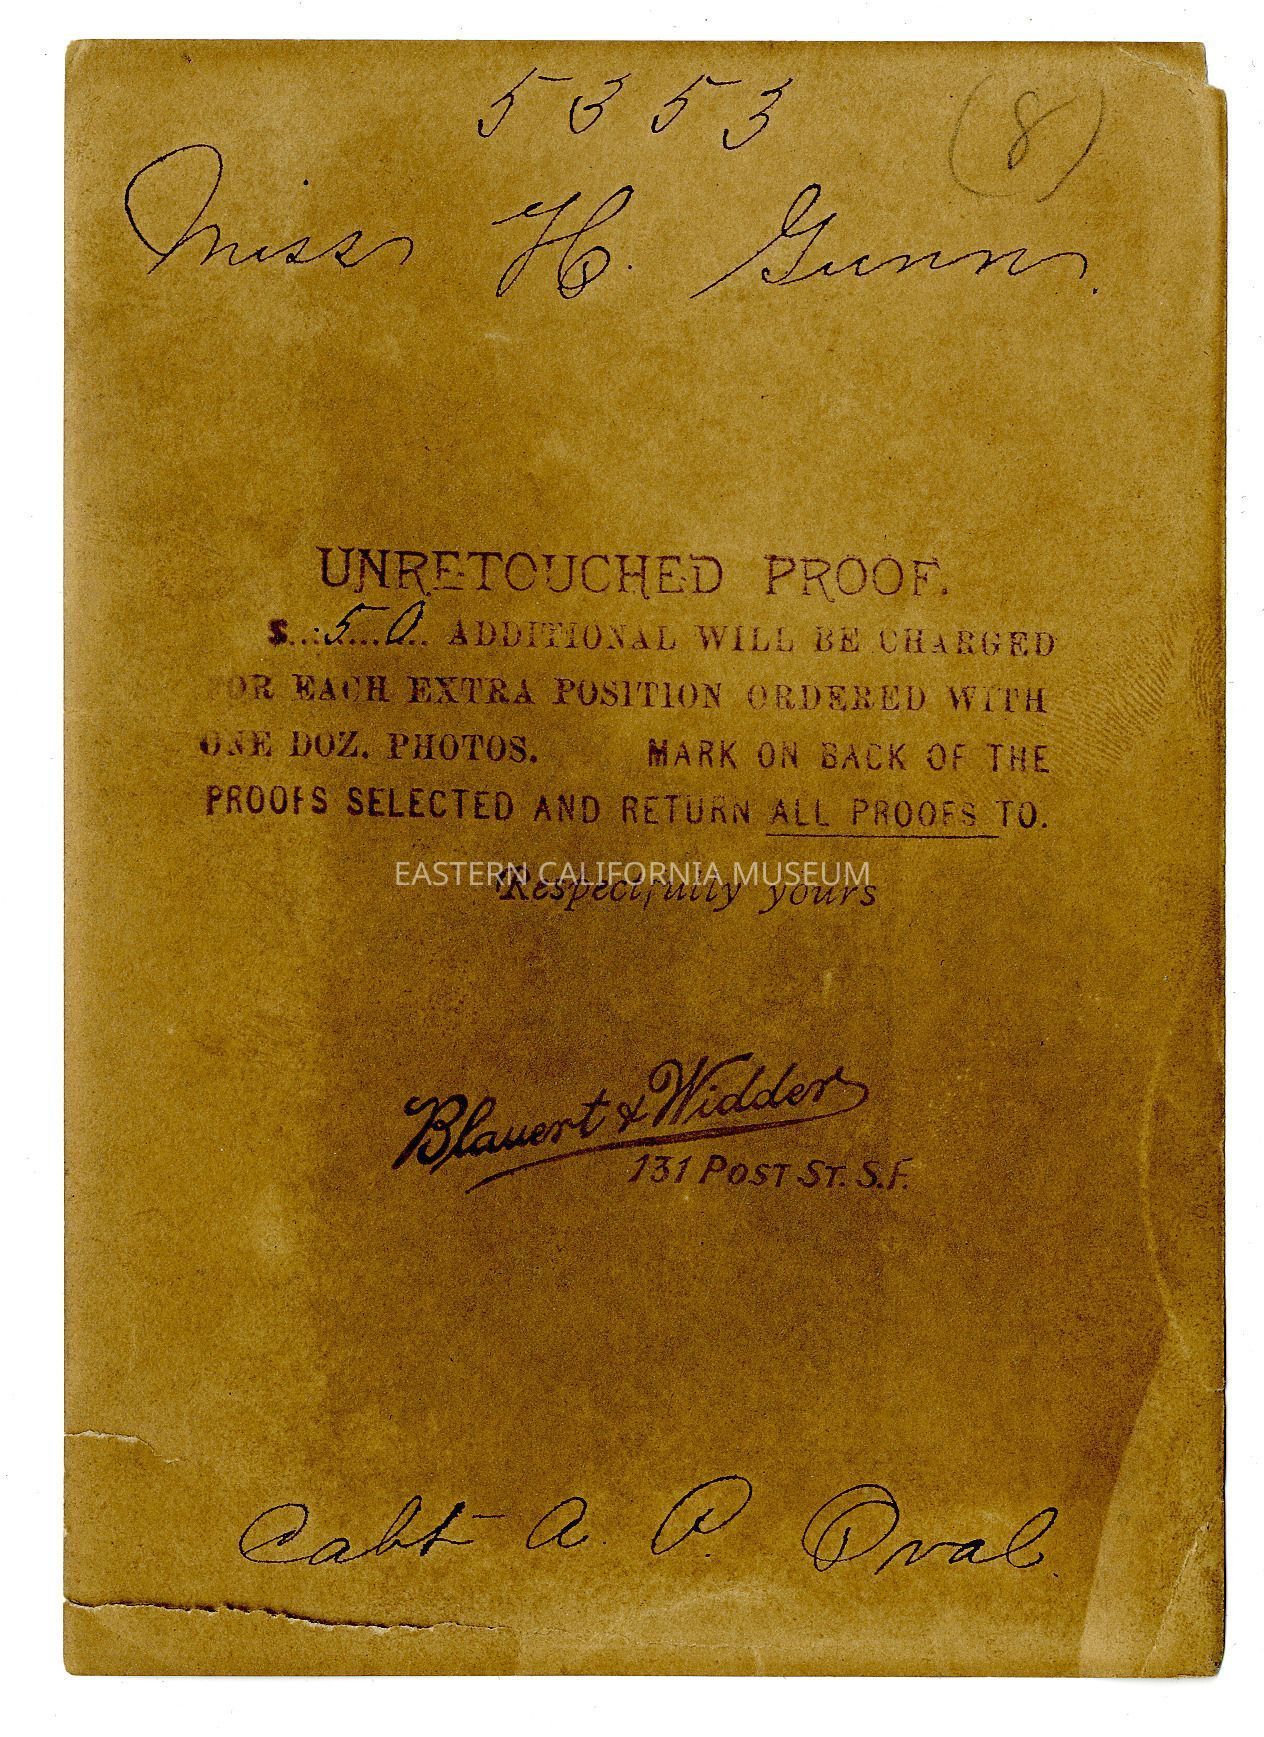 5353
(8)
Miss H. Gunn.
UNRETOUCHED PROOF.
$..:5...0.. ADDITIONAL WILL BE CHARGED
FOR EACH EXTRA POSITION ORDERED WITH
ONE DOZ. PHOTOS. MARK ON BACK OF THE
PROOFS SELECTED AND RETURN ALL PROOFS TO.
EASTERN CALIFORNIA MUSEUM
Respectfully yours
Blauert & Widder
131 POST ST. S.F.
Cabt A. P. Oval.